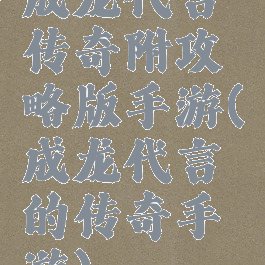 成龙代言
传奇附攻
略版手游(
成龙代言
的传奇手
游)